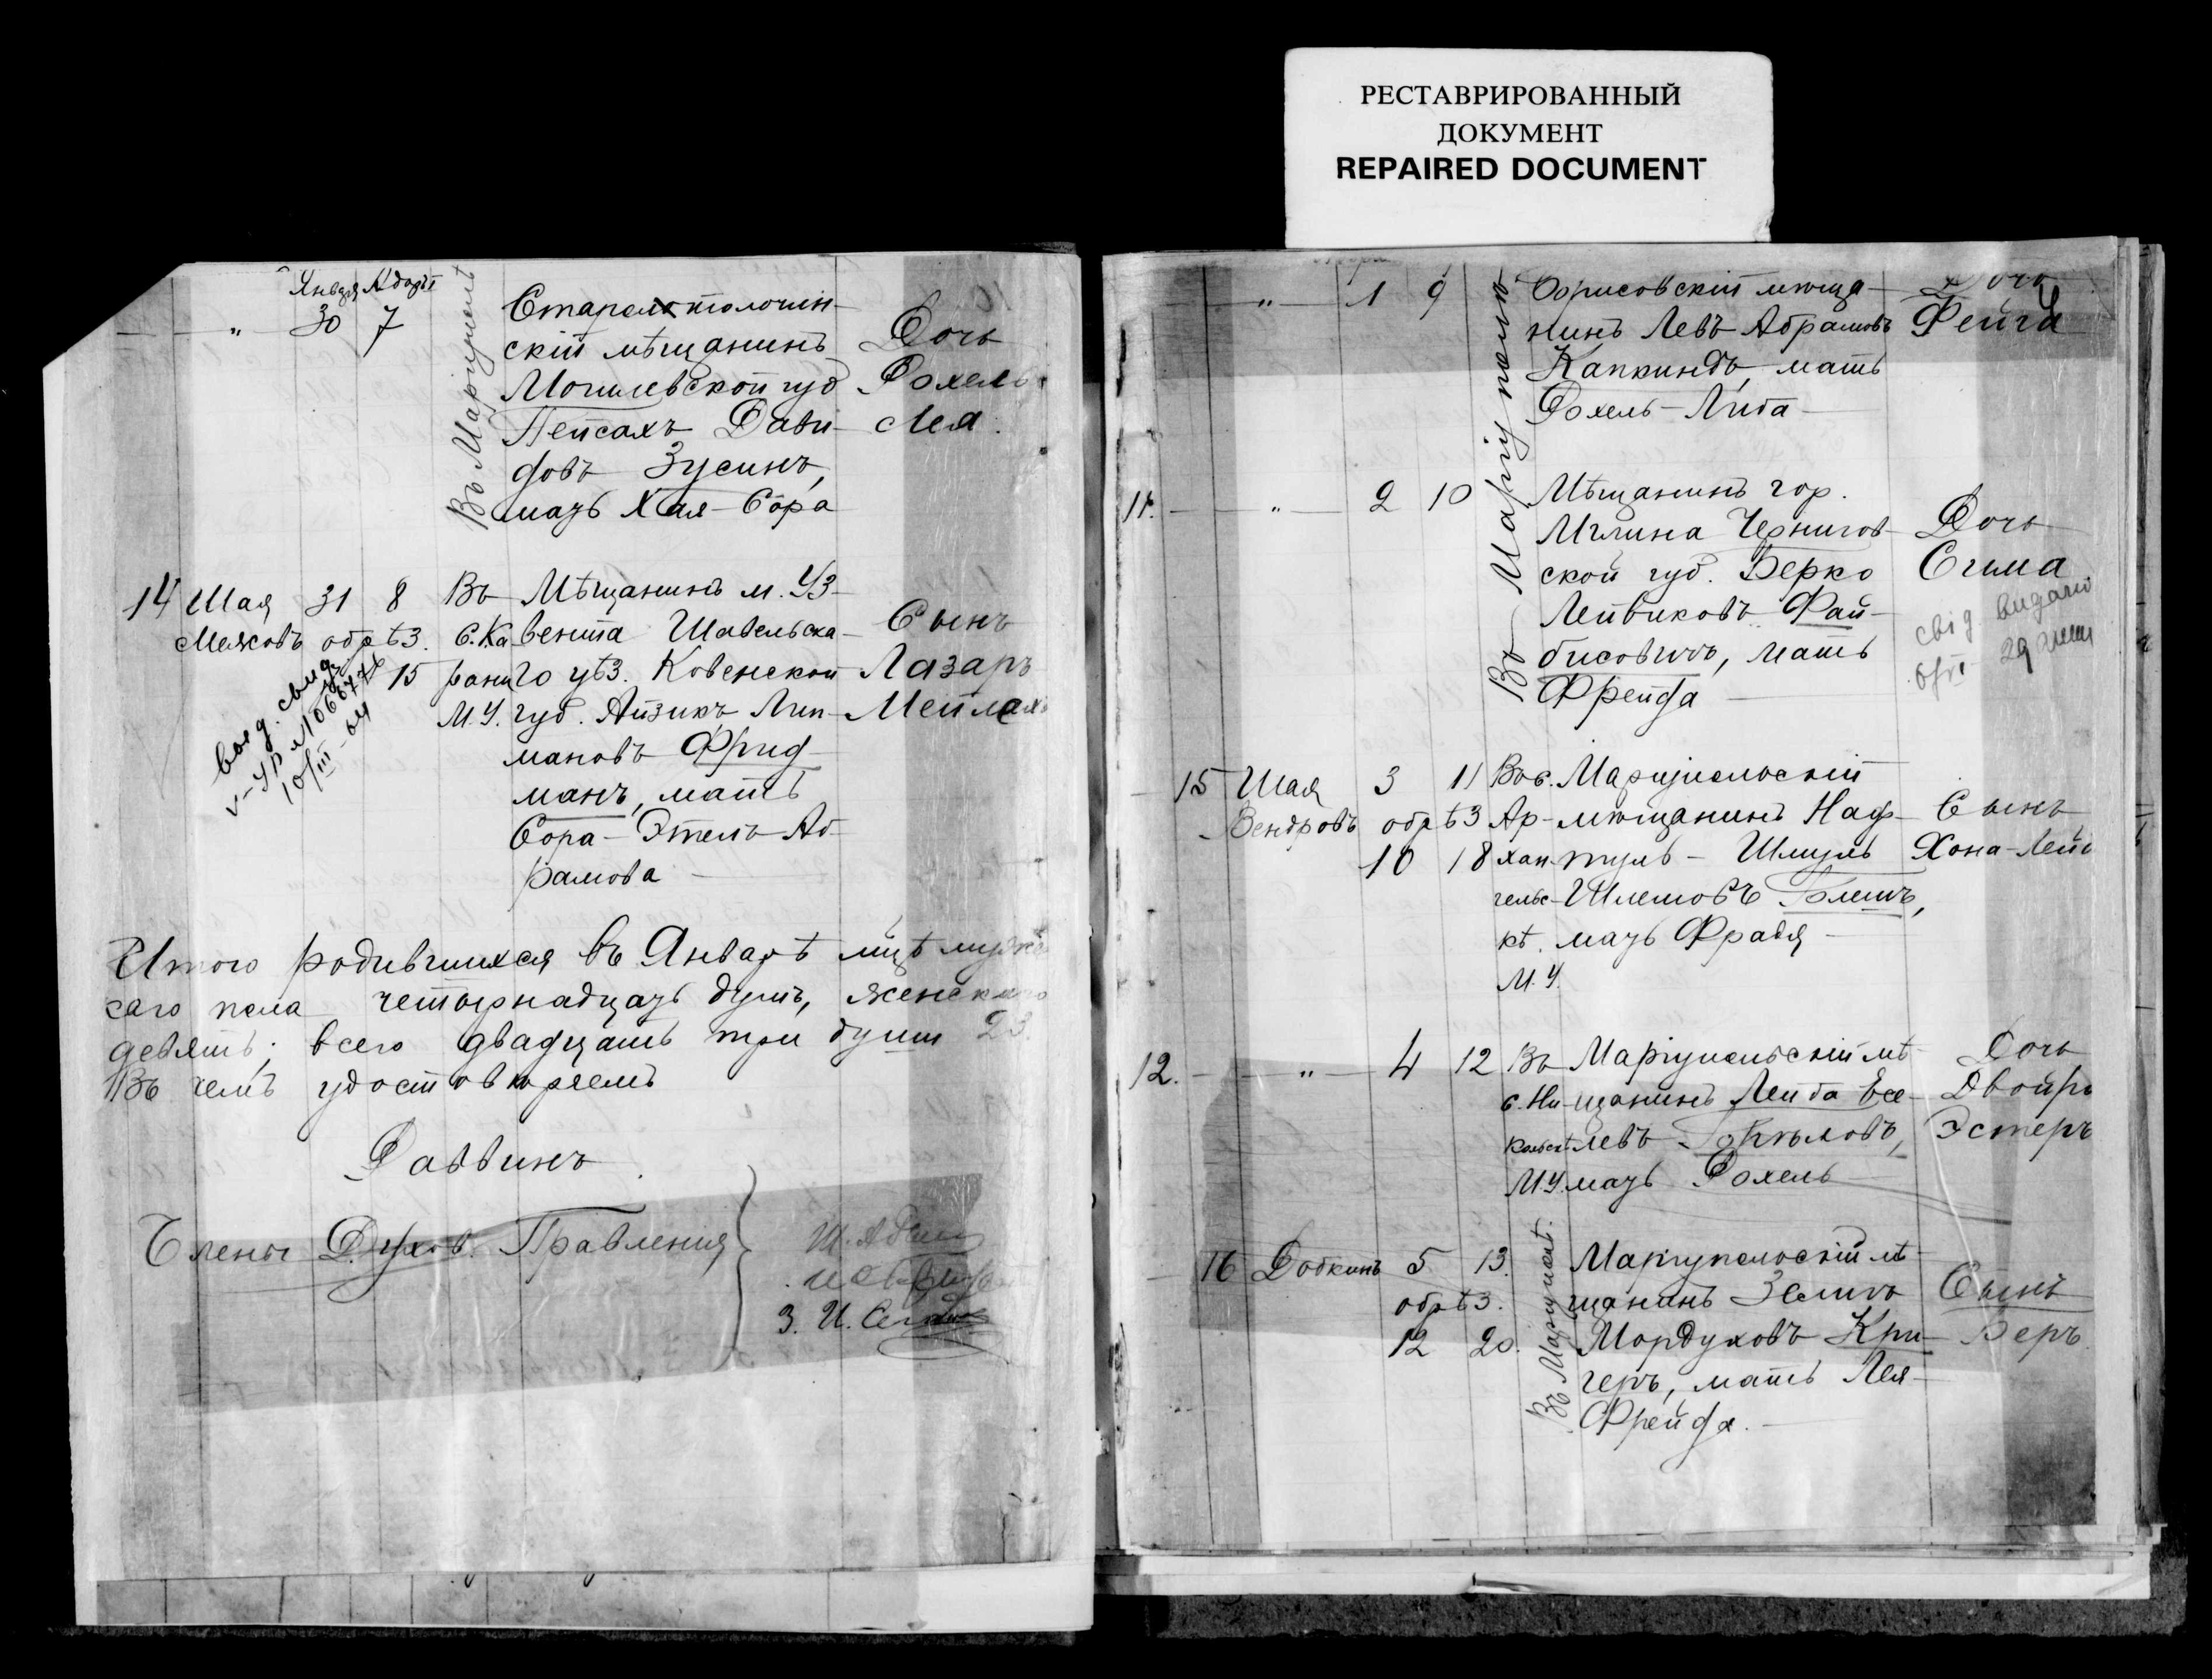 РЕСТАВРИРОВАННЫЙ
ДОКУМЕНТ
REPAIRED DOCUMENT
Января
„ 30 7
Въ Маріуполѣ
скій мѣщанинъ
Могилевской губ
Пейсахъ Дави-
довъ Зусинъ,
мать Хая-Сора
Дочь
Рохель
Лея.
14 Шая 31 8
обрѣз.
15
Въ
М.У.
Мѣщанинъ м. Уз-
вента Шавельска-
го уѣз. Ковенской
губ. Айзикъ Лип-
мановъ Фрид
манъ, мать
Сора-Этель Аб-
рамова
Сынъ
Лазаръ
10/III-64
Итого родившихся въ Январѣ мцѣ
саго пола четырнадцать душъ, женскаго
девять; всего двадцать три души 23.
Въ чемъ удостовѣряемъ
Раввинъ
Члены Духов. Правленія
„ 1 9
Въ Маріуполѣ
Борисовскій мѣща-
нинъ Левъ Абрамовъ
Капкиндъ, мать
Рохель-Либа
Дочь
Фейга
11. „ 2 10
Въ Маріуполѣ
Мѣщанинъ гор.
Мглина Чернигов-
ской губ. Берко
Лейвиковъ Фай-
бисовичъ, мать
Фрейда
Дочь
Сима
15 Шая 3 11
обрѣз
10 18
Въ с.
Ар-
хан-
гельс-
кѣ.
М.У.
Маріупольскій
мѣщанинъ Наф-
туль - Шмуль
Шлемовъ Блешъ,
мать Фрадя
Сынъ
12. „ 4 12
Въ
с. Ни-
М.У.
Маріупольскій мѣ-
щанинъ Лейба Есе-
левъ
мать Рохель
Дочь
Эстеръ
16 Добкинъ 5 13.
обрѣз.
12 20.
Въ Маріупол.
Маріупольскій мѣ-
щанинъ Зеликъ
Мордуховъ Кри-
геръ, мать Лея-
Фрейда.
Сынъ
Беръ